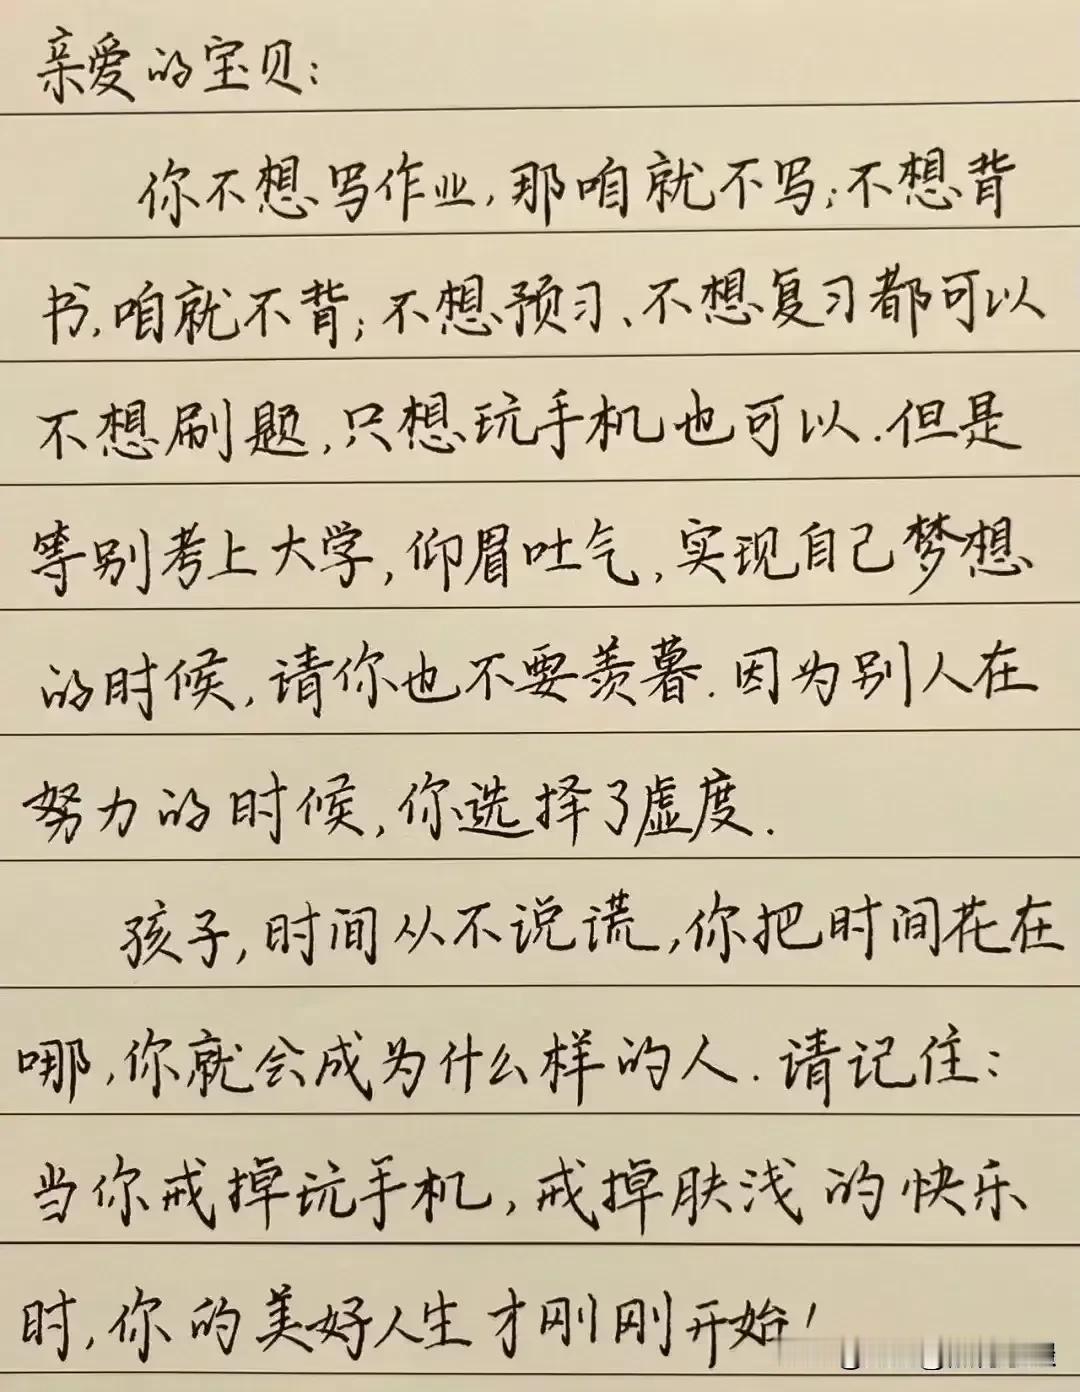 亲爱的宝贝:
你不想写作业,那咱就不写;不想背
书,咱就不背;不想预习、不想复习都可以
不想刷题,只想玩手机也可以.但是
等别考上大学,仰眉吐气,实现自己梦想
的时候,请你也不要羡暮.因为别人在
努力的时候,你选择了虚度.
孩子,时间从不说谎,你把时间花在
哪,你就会成为什么样的人.请记住:
当你戒掉玩手机,戒掉肤浅的快乐
时,你的美好人生才刚刚开始!